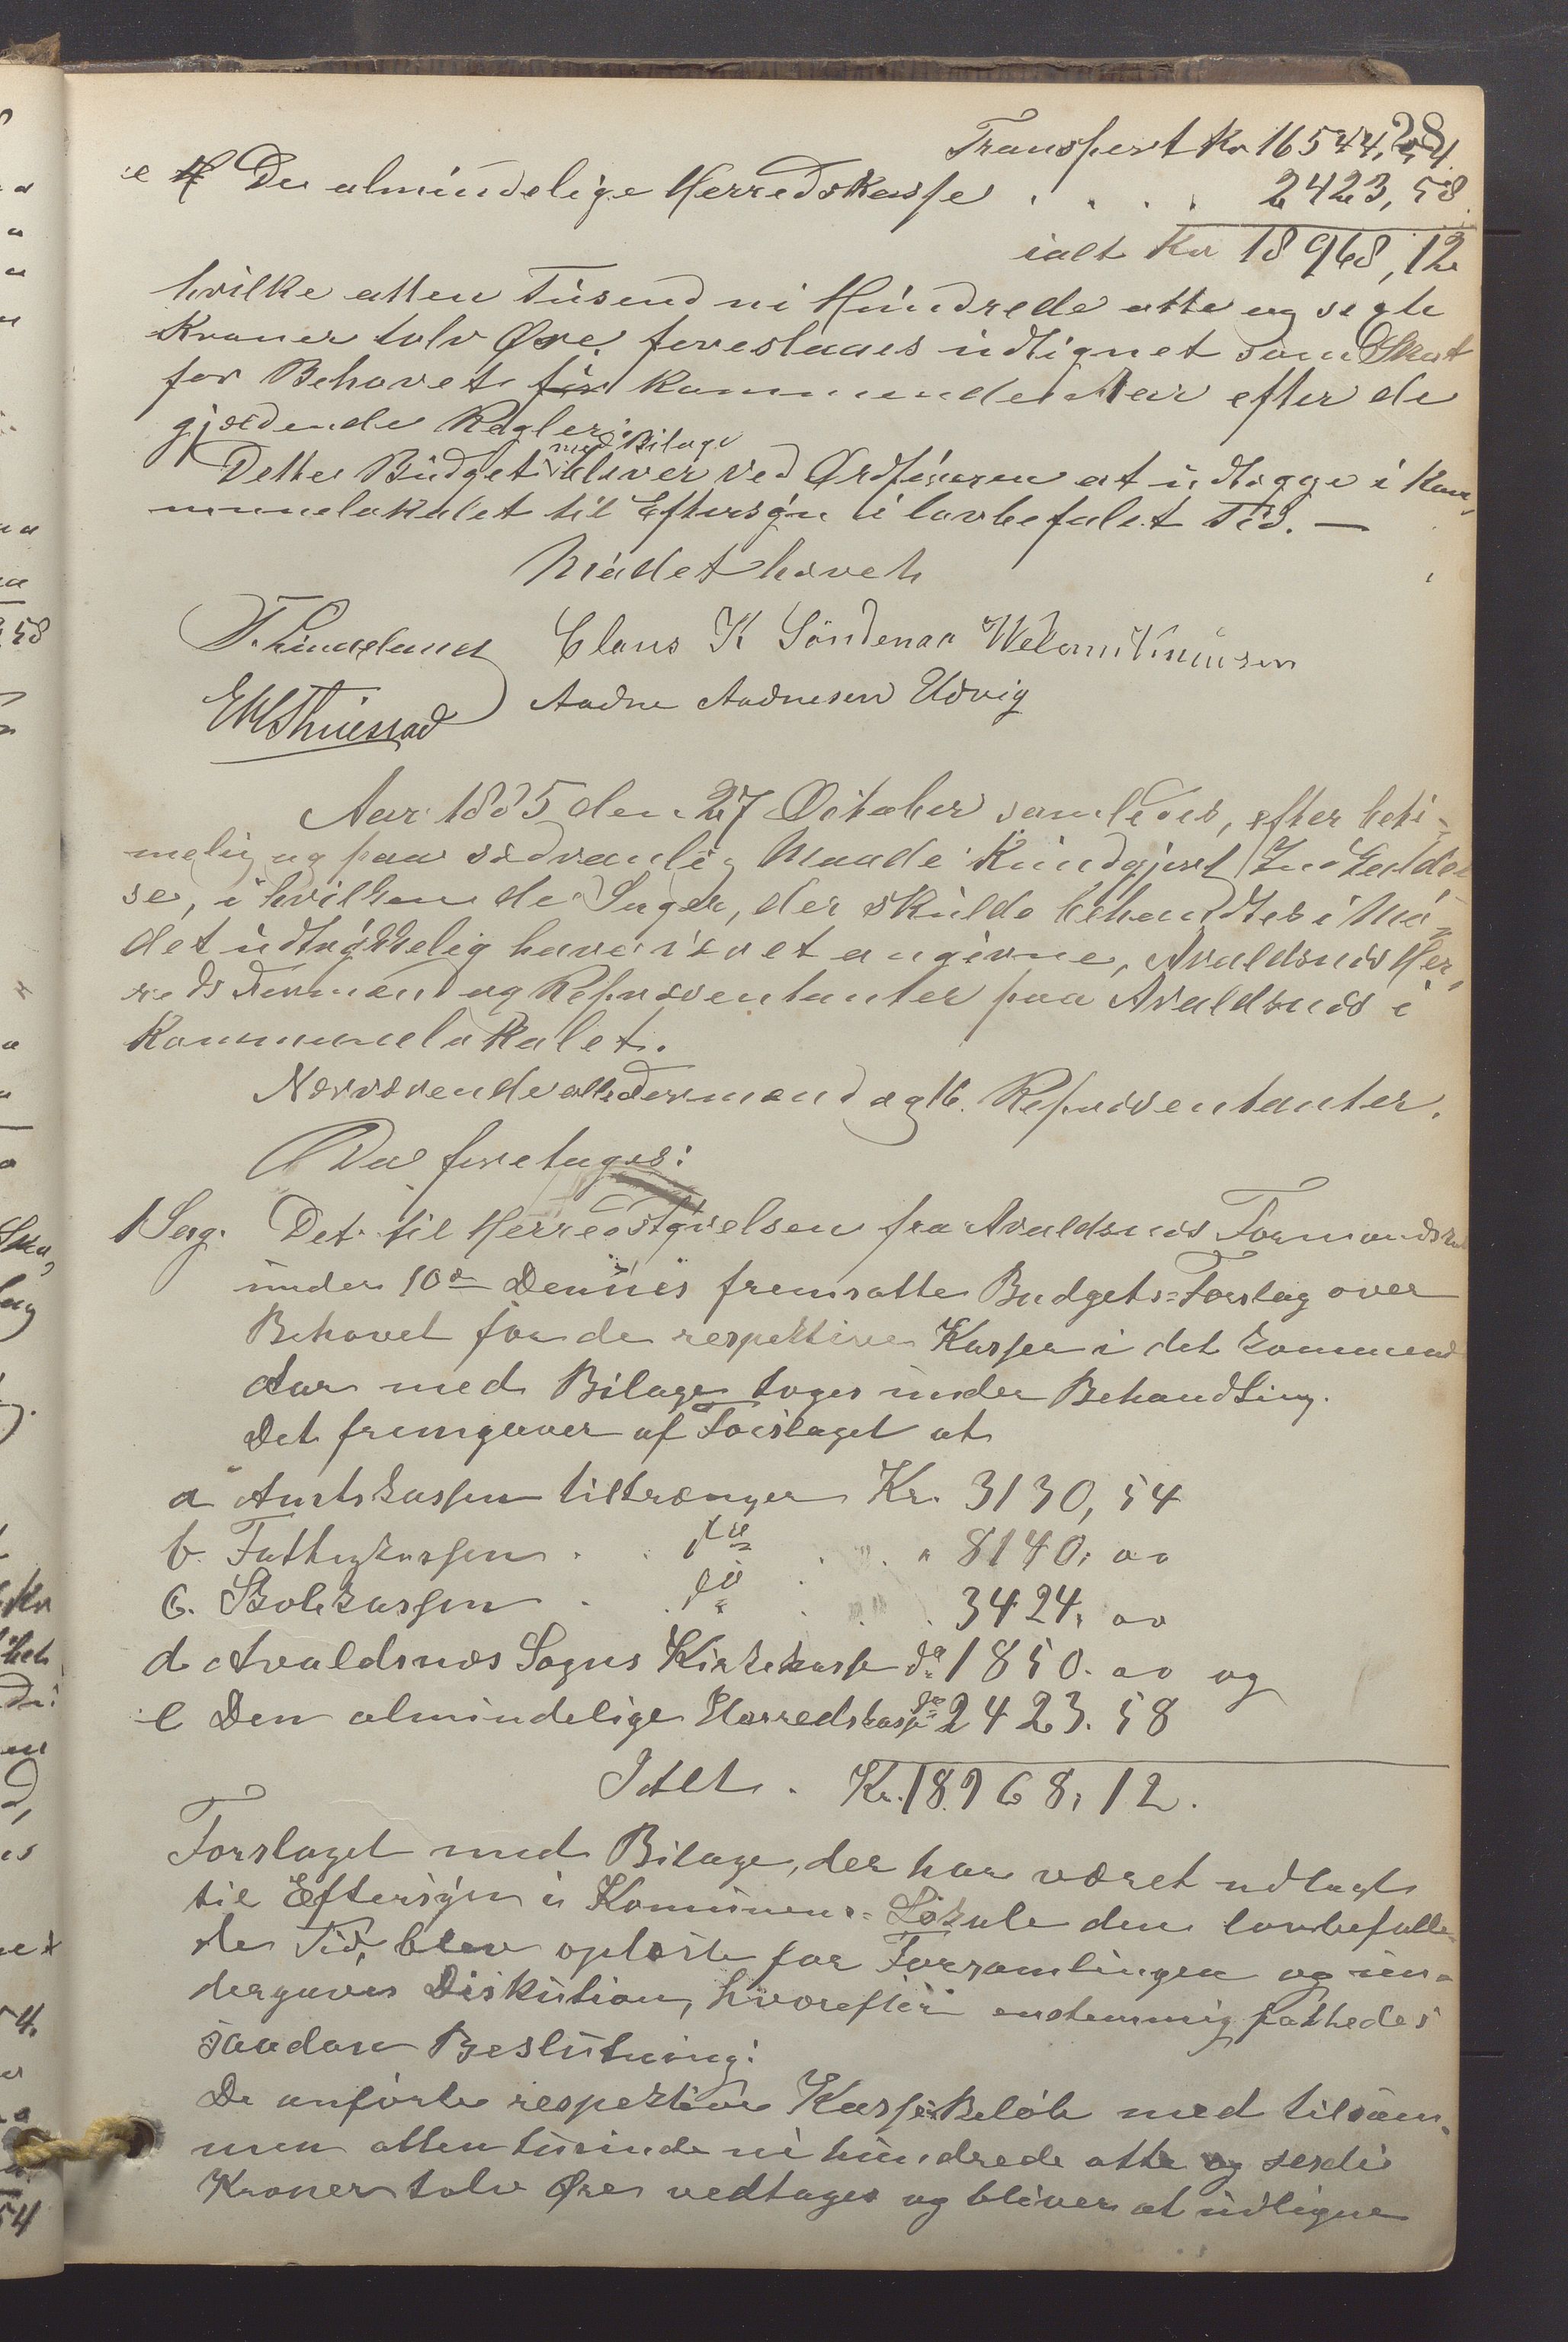 28
Transport Kr 16544,54
e Den almindelige Herredskasse . . . . 2423,58
ialt Kr 18968,12
hvilke atten Tusend ni Hundrede otte og segti
Kroner tolv Øre, foreslaaes udlignet som Skat
for Behovet for kommende Aar efter de
gjældende Regler.
med Bilage
Dette Budget bliver ved Ordføreren at udlægge i Kom-
munelokalet til Eftersyn i lovbefalet Tid. —
Mødet hævet
Claus K Søndenaa
Aadne Aadnesen Udvig
Aar 1885 den 27 Oktober samledes, efter beti-
melig og paa sædvanlig Maade Kundgjort Indkaldel
se, i hvilken de Sager, der skulde behandles i Mø-
det udtrykkelig have været angivne, Avaldsnæs Her-
reds Formænd og Repræsentanter paa Avaldsnæs i
Kommunelokalet.
Nærværende alle Formænd og 16. Repræsentanter.
Da foretages:
1 Sag. Det til Herredstyrelsen fra Avaldsnæs Formandsk
under 10de Dennes fremsatte Budgets-Forslag over
Behovet for de respektive Kasser i det kommend
Aar med Bilage toges under Behandling.
Det fremgaaer af Forslaget at
a Amtskassen tiltrænger Kr. 3130,54
b. Fattigkassen . . do . . " 8140, oo
c. Skolekassen . . do . . . 3424, oo
d Avaldsnæs Sogns Kirkekasse do 1850. oo og
e Den almindelige Herredskasse do 2423.58
Ialt . Kr. 18968,12.
Forslaget med Bilage, der har været udlagt
til Eftersyn i Kommunens Lokale den lovbefalle-
de Tid, blev oplæste for Forsamlingen og un-
dergaves Diskution, hvorefter enstemmig fattedes
saadan Beslutning:
De anførte respektive Kasse Beløb med tilsam-
men atten tusinde ni hundrede otte og sexti
Kroner tolv Øre vedtages og bliver at udligne